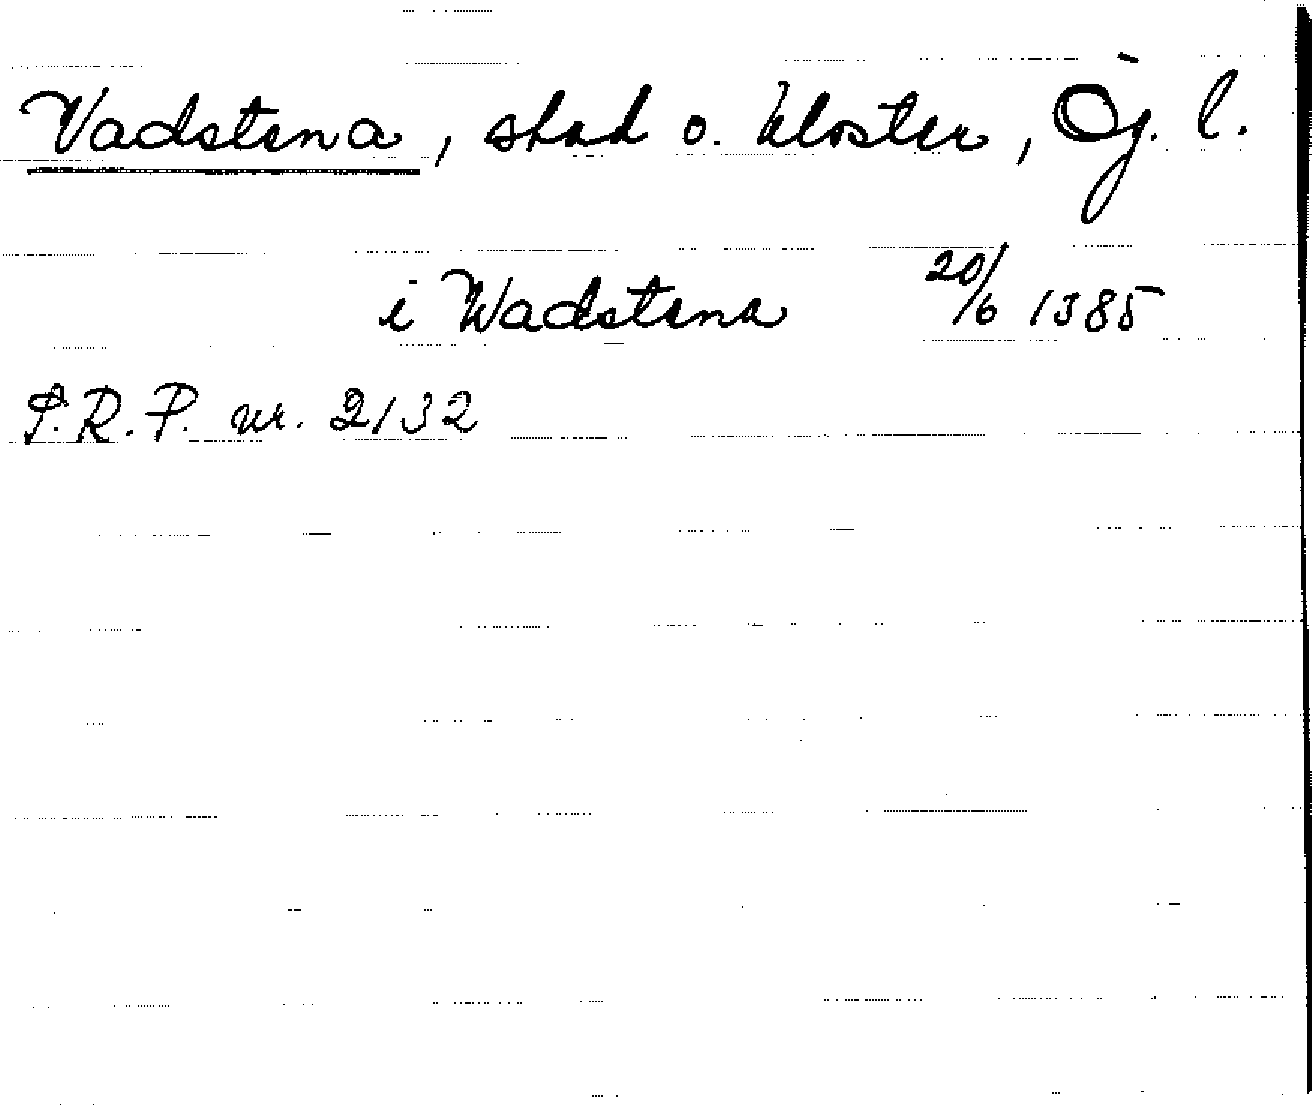 Vadstena, stad o. kloster, Ög. l.
i Wadstena 20/6 1385
S.R.P. nr. 2132